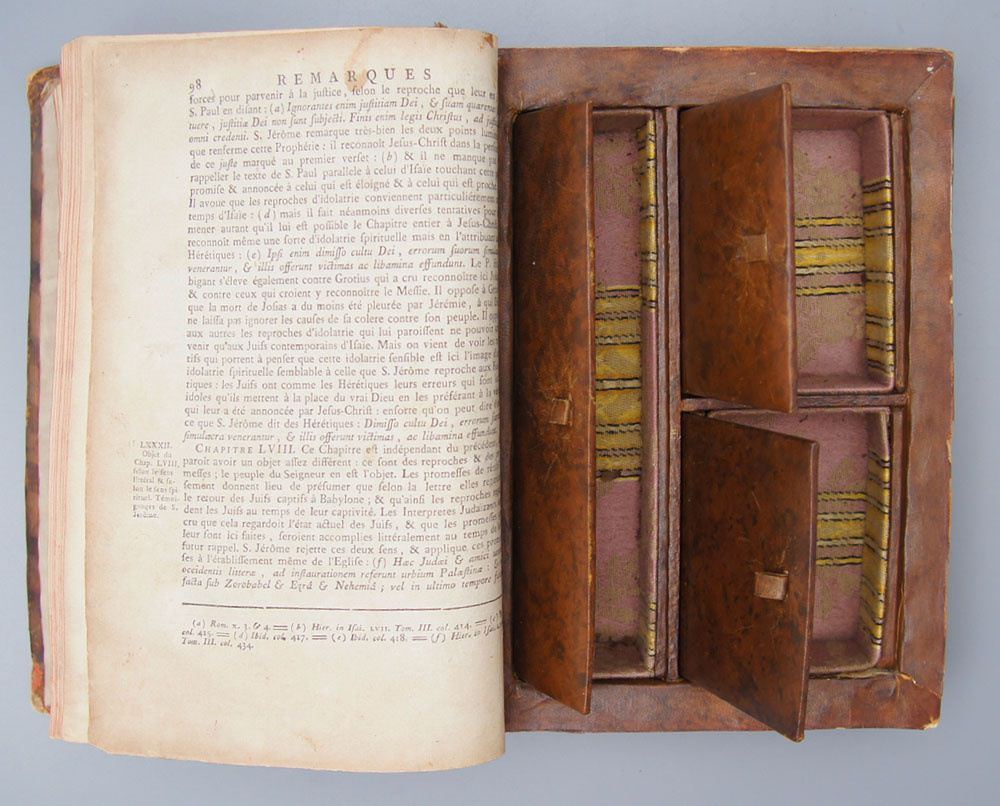 98
REMARQUES
forces pour parvenir à la justice, selon le reproche que leur en
S. Paul en disant : (a) Ignorantes enim justitiam Dei, & suam quærentes
tuere, justitiæ Dei non sunt subjecti. Finis enim legis Christus, ad
omni credenti. S. Jérôme remarque très-bien les deux points
que renferme cette Prophétie : il reconnoît Jesus-Christ dans la
de ce juste marqué au premier verset : (b) & il ne manque pas
rappeller le texte de S. Paul parallèle à celui d'Isaïe touchant cette
promise & annoncée à celui qui est éloigné & à celui qui est proche
Il avoue que les reproches d'idolatrie conviennent particuliérement
temps d'Isaïe : (d) mais il fait néanmoins diverses tentatives pour
mener autant qu'il lui est possible le Chapitre entier à Jesus-Christ
reconnoît même une sorte d'idolatrie spirituelle mais en l'attribuant
Hérétiques : (e) Ipsi enim dimisso cultu Dei, errorum suorum
venerantur, & illis offerunt victimas ac libamina effundunt. Le P.
bigant s'éleve également contre Grotius qui a cru reconnoître ici
& contre ceux qui croient y reconnoître le Messie. Il oppose à
que la mort de Josias a du moins été pleurée par Jérémie, à qui
ne laissa pas ignorer les causes de sa colere contre son peuple. Il
aux autres les reproches d'idolatrie qui lui paroissent ne pouvoir
venir qu'aux Juifs contemporains d'Isaïe. Mais on vient de voir les
tifs qui portent à penser que cette idolatrie sensible est ici l'image
idolatrie spirituelle semblable à celle que S. Jérôme reproche aux
tiques : les Juifs ont comme les Hérétiques leurs erreurs qui sont
idoles qu'ils mettent à la place du vrai Dieu en les préférant à la
qui leur a été annoncée par Jesus-Christ : ensorte qu'on peut dire
ce que S. Jérôme dit des Hérétiques : Dimisso cultu Dei, errorum
simulacra venerantur, & illis offerunt victimas, ac libamina effundunt.
LXXXII.
Objet du
Chap. LVIII.
selon le sens
littéral & se-
lon le sens spi-
rituel. Témoi-
gnages de S.
Jérôme.
CHAPITRE LVIII. Ce Chapitre est indépendant du précédent
paroît avoir un objet assez différent : ce sont des reproches & des
messes ; le peuple du Seigneur en est l'objet. Les promesses de
sement donnent lieu de présumer que selon la lettre elles
le retour des Juifs captifs à Babylone ; & qu'ainsi les reproches
dent les Juifs au temps de leur captivité. Les Interpretes
cru que cela regardoit l'état actuel des Juifs, & que les promesses
leur sont ici faites, seroient accomplies littéralement au temps de
futur rappel. S. Jérôme rejette ces deux sens, & applique ces
ses à l'établissement même de l'Eglise : (f) Hæc Judæi & amici
occidentis litteræ, ad instaurationem referunt urbium Palæstinæ :
facta sub Zorobabel & Ezrâ & Nehemiâ ; vel in ultimo tempore
(a) Rom. x. 3. & 4. = (b) Hier. in Isai. LVII. Tom. III. col. 414. =
col. 415. = (d) Ibid. col. 417. = (e) Ibid. col. 418. = (f) Hier. in
Tom. III. col. 434.